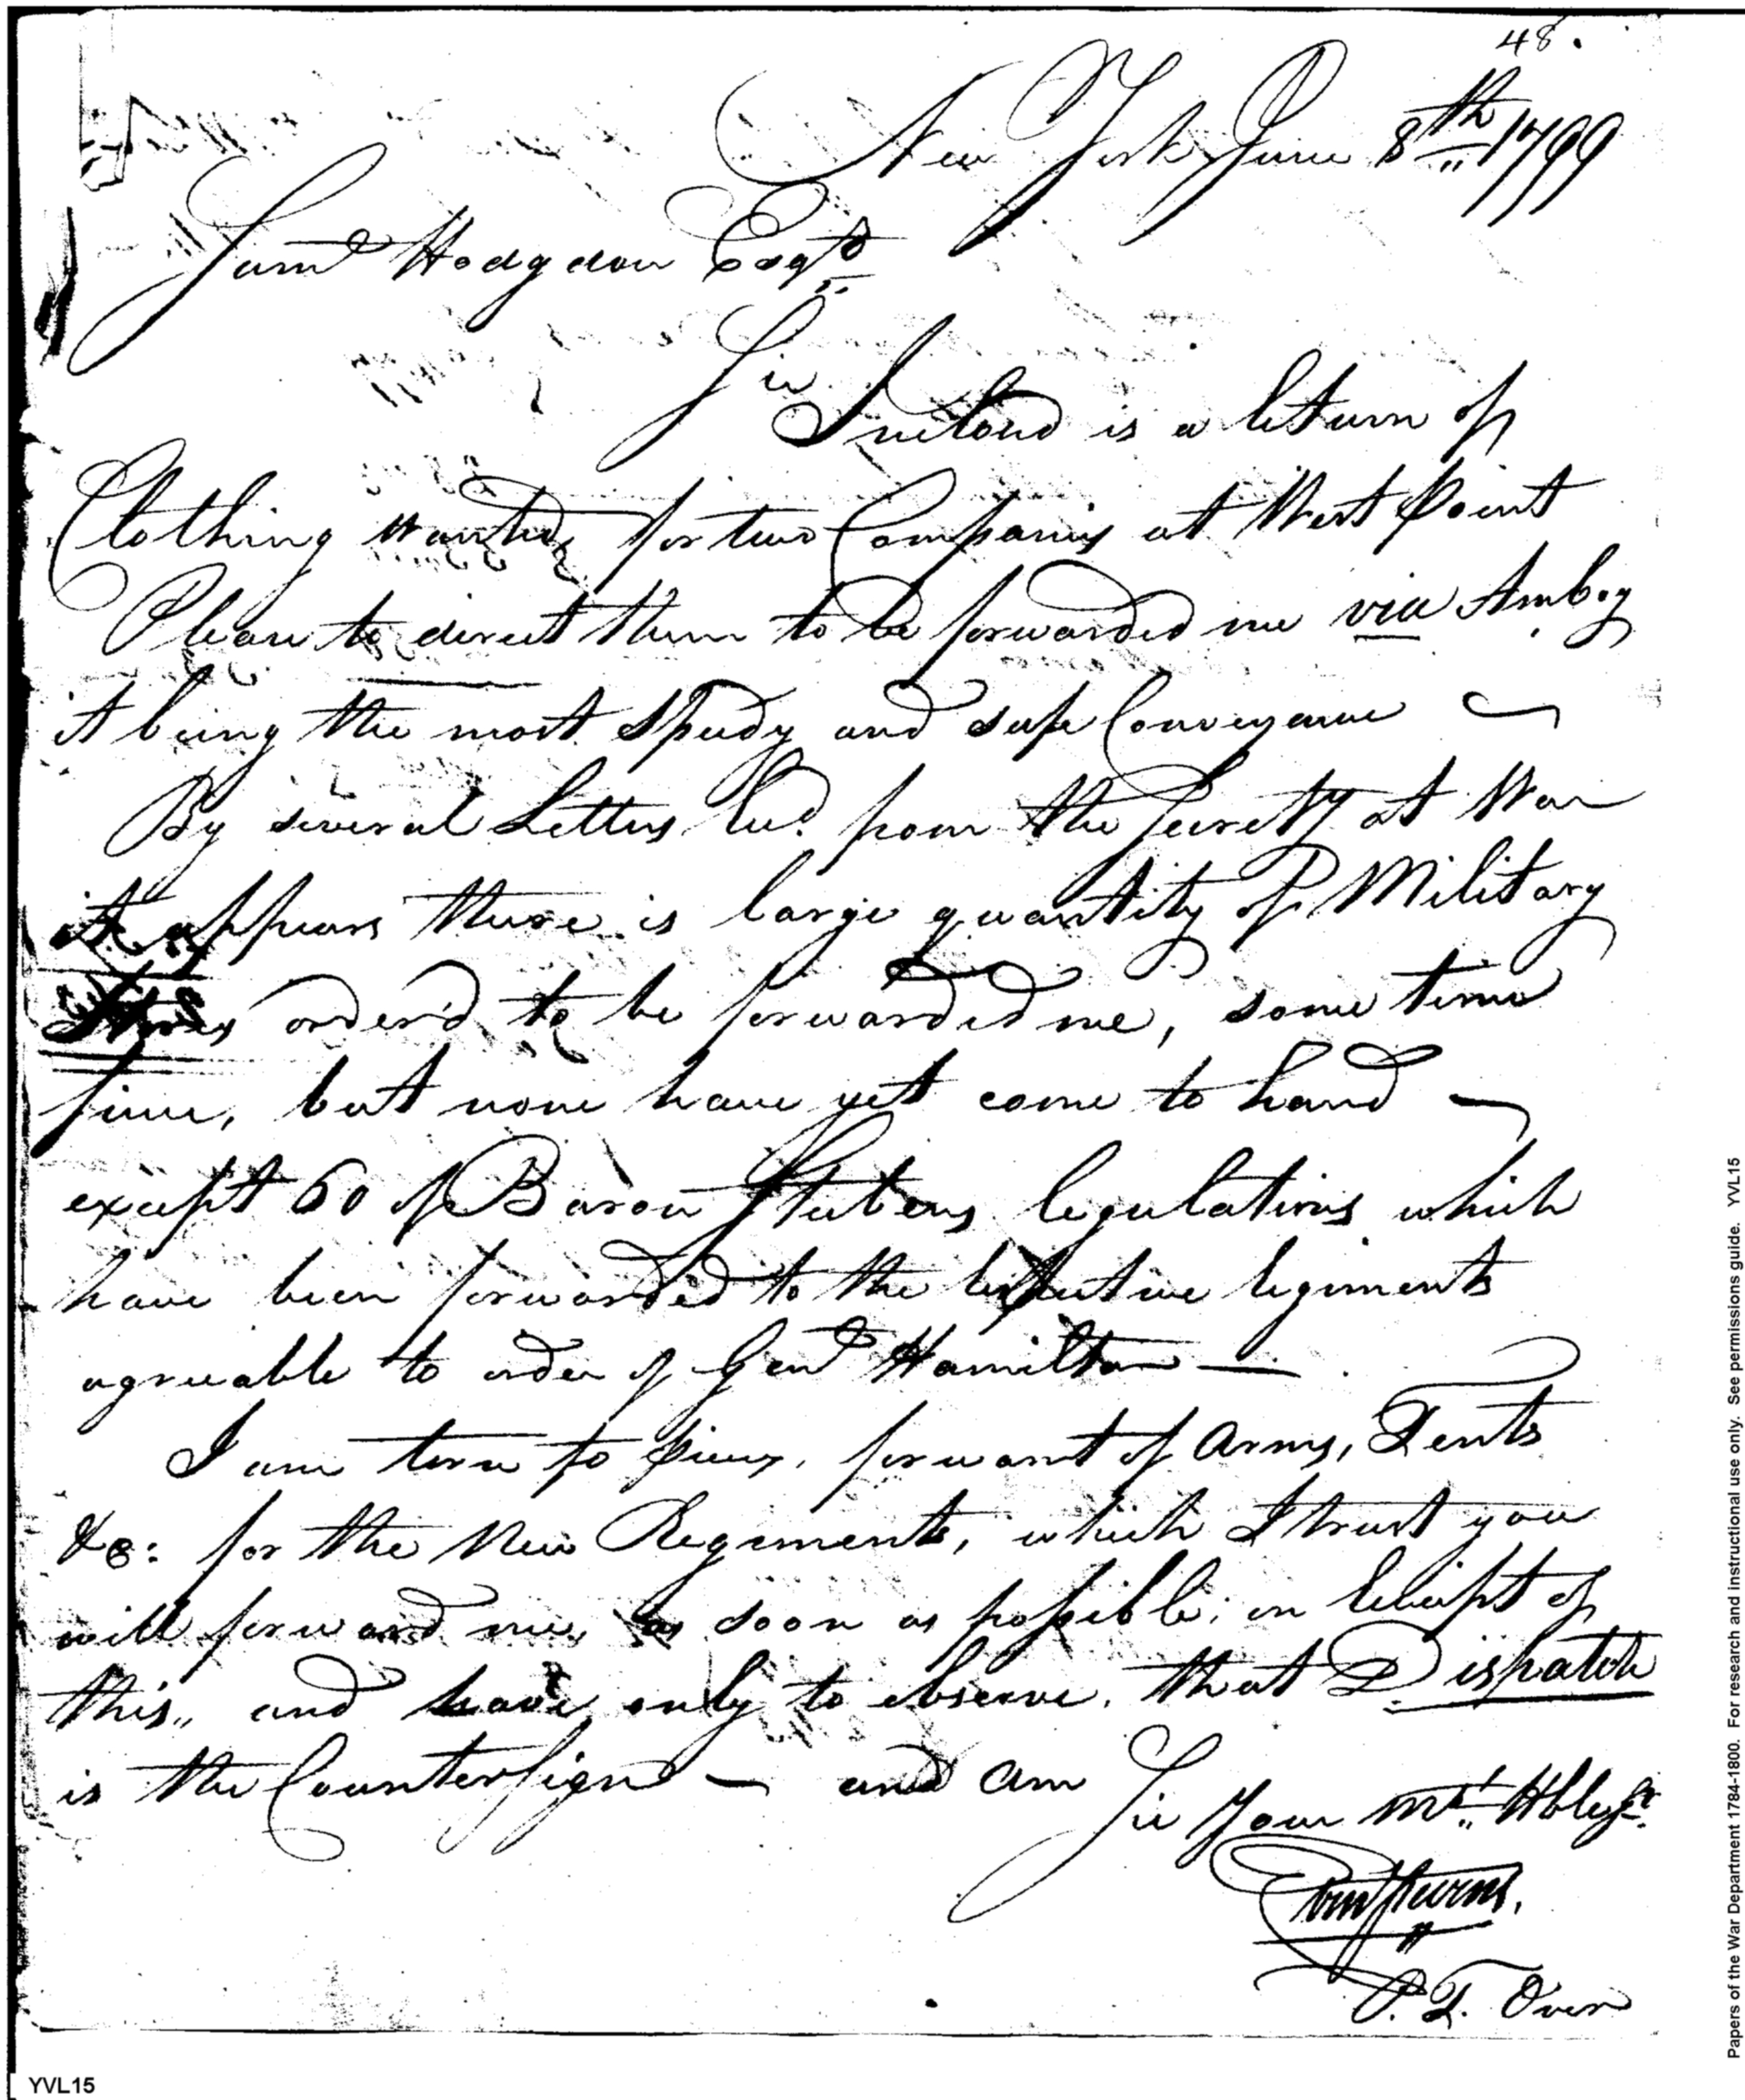 48.
New York June 8th 1799
Saml Hodgdon Esqr
Sir
Inclosed is a Return of
Clothing wanted, for two Companies at West Point
Please to direct them to be forwarded me via Amboy
it being the most Speedy and safe Conveyance —
By several Letters Recd. from the Secrety at War
it appears there is large quantity of Military
Stores order'd to be forwarded me, some time
since, but none have yet come to hand —
except 60 of Baron Stubens Regulations which
have been forwarded to the respective Regiments
agreeable to order of Genl Hamilton —
I am torn to pieces, for want of Arms, Tents
&c: for the New Regiments, which I trust you
will forward me, as soon as possible; on Receipt of
this,, and have only to observe, that Dispatch
is the Countersign — and am
Sir Your Mt. Hble St.
P. T. Over
Papers of the War Department 1784-1800. For research and instructional use only. See permissions guide. YVL15
YVL15